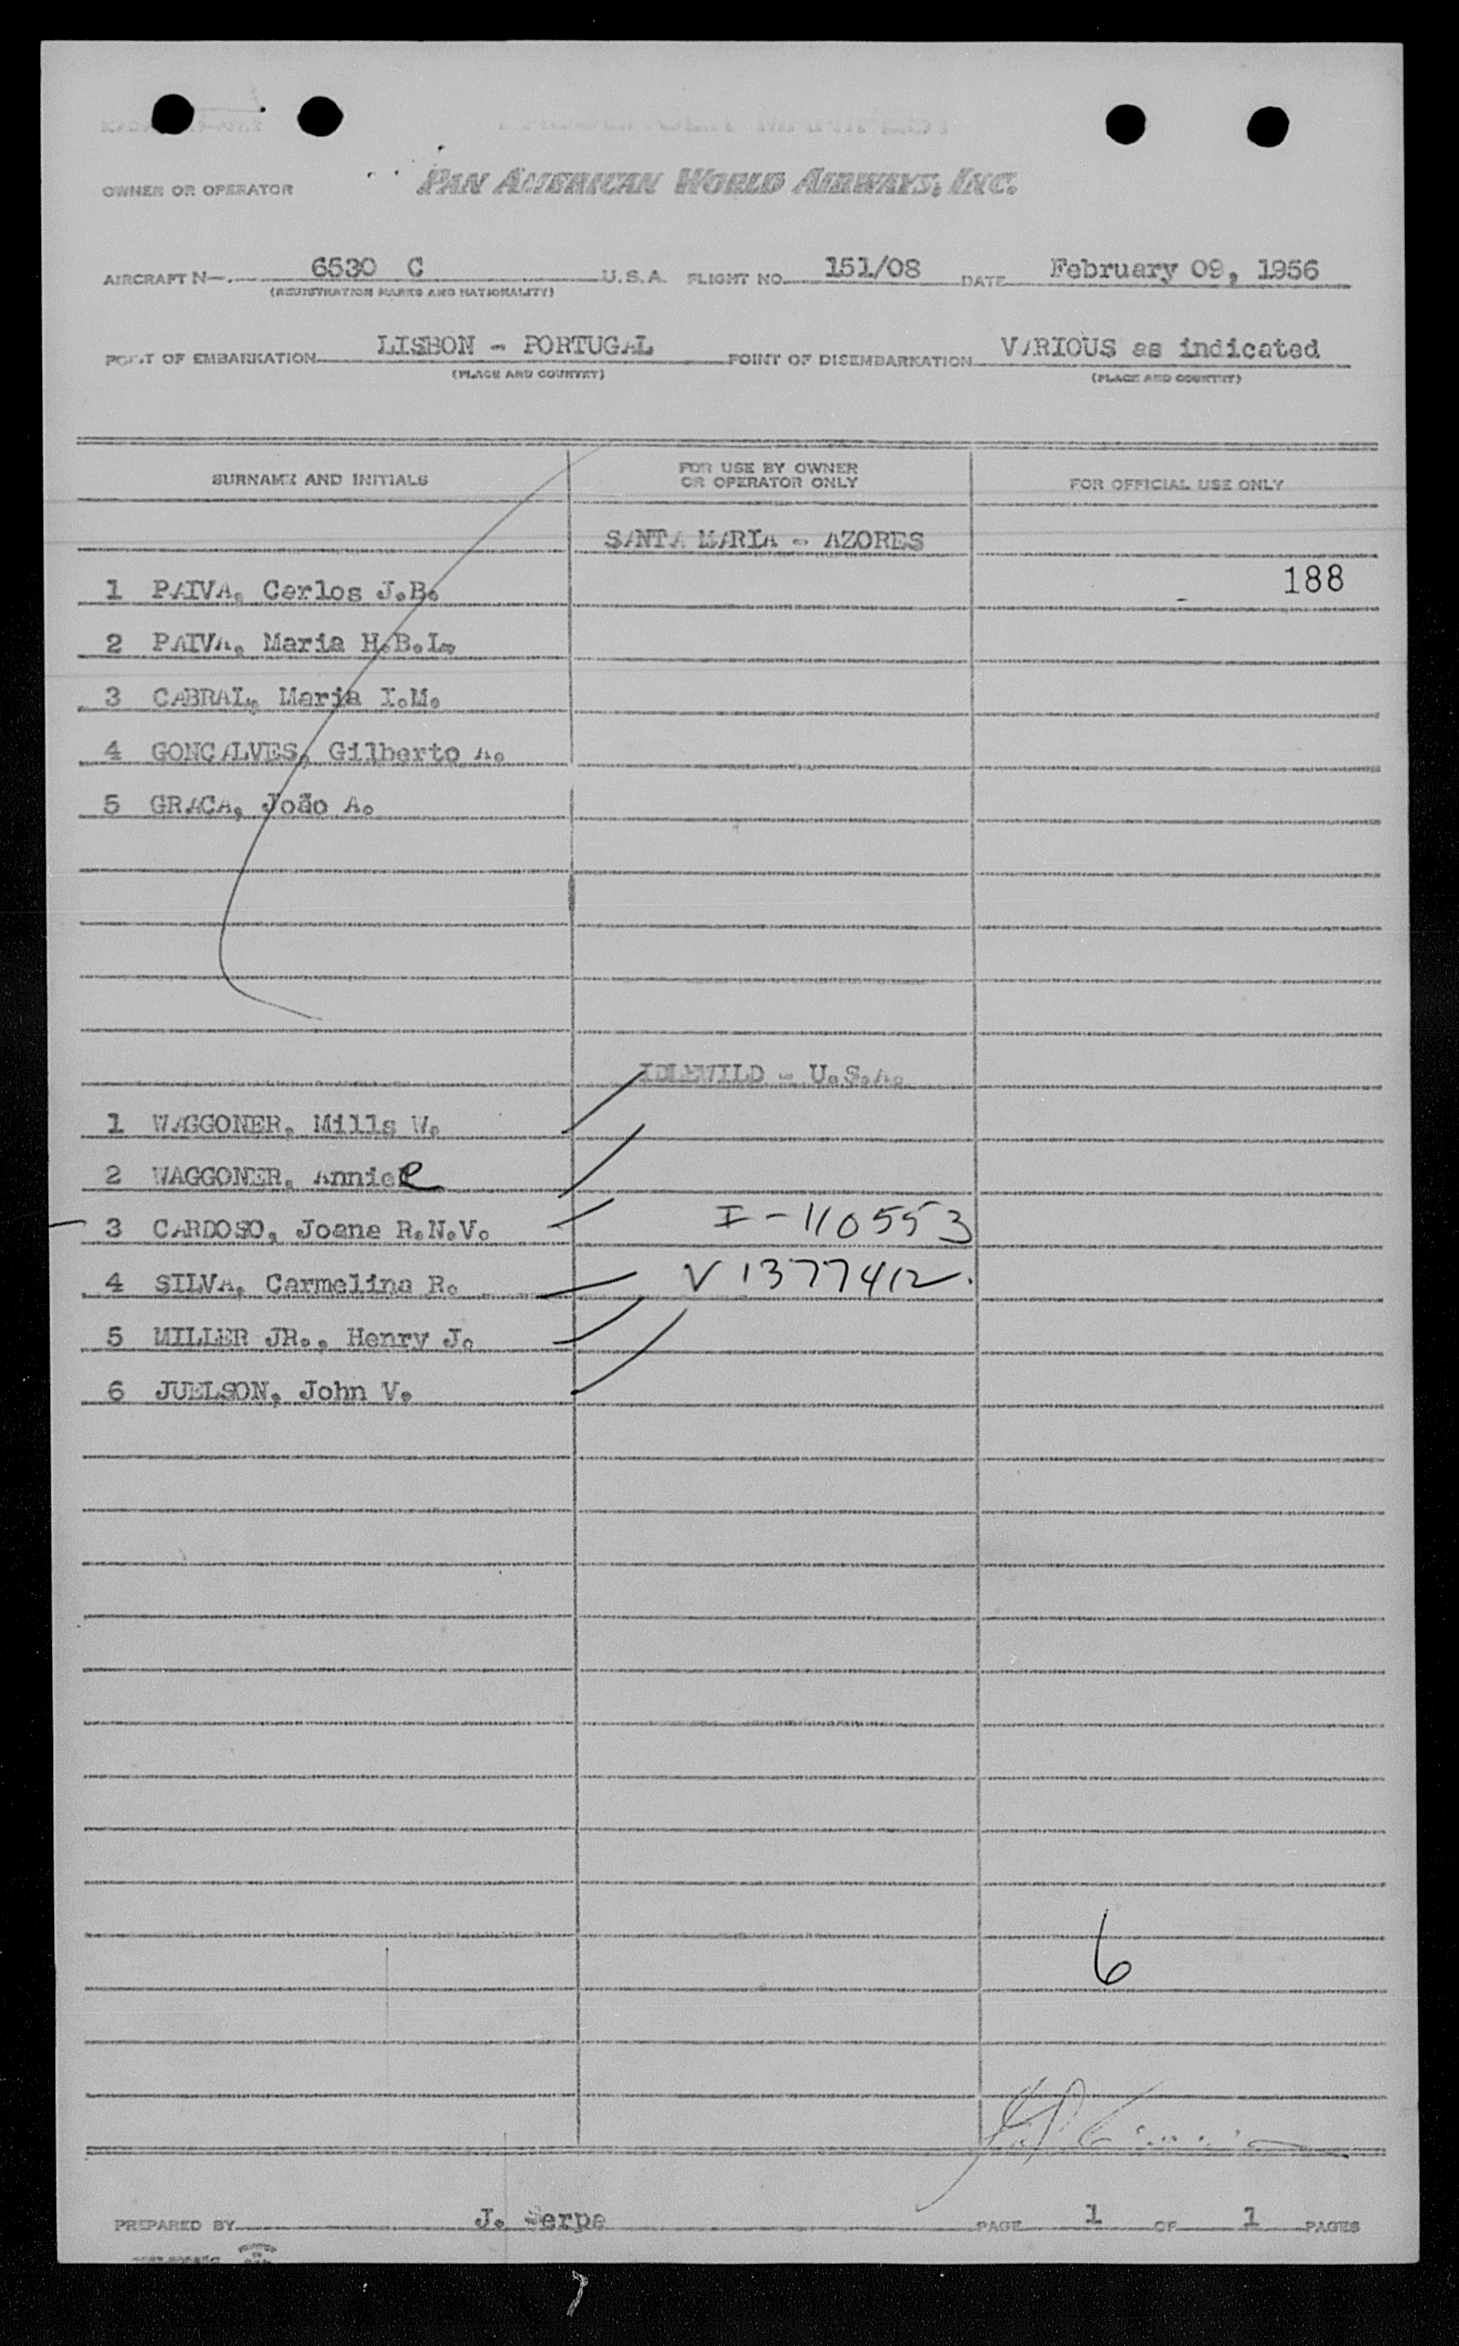 PAN AMERICAN WORLD AIRWAYS, INC.
OWNER OR OPERATOR
AIRCRAFT N—. 6530 C U.S.A. FLIGHT NO. 151/08 DATE February 09, 1956
(REGISTRATION MARKS AND NATIONALITY)
POINT OF EMBARKATION LISBON - PORTUGAL POINT OF DISEMBARKATION VARIOUS as indicated
(PLACE AND COUNTRY) (PLACE AND COUNTRY)
SURNAME AND INITIALS FOR USE BY OWNER OR OPERATOR ONLY FOR OFFICIAL USE ONLY
SANTA MARIA - AZORES
1 PAIVA, Carlos J.B. 188
2 PAIVA, Maria H.B.L.
3 CABRAL, Maria I.M.
4 GONÇALVES, Gilberto A.
5 GRACA, João A.
IDLEWILD - U.S.A.
1 WAGGONER, Mills W.
2 WAGGONER, Annie e
3 CARDOSO, Joane R.N.V. I-110553
4 SILVA, Carmelina R. V 1377412.
5 MILLER JR., Henry J.
6 JUELSON, John V.
6
PREPARED BY J. Serpa PAGE 1 OF 1 PAGES
7